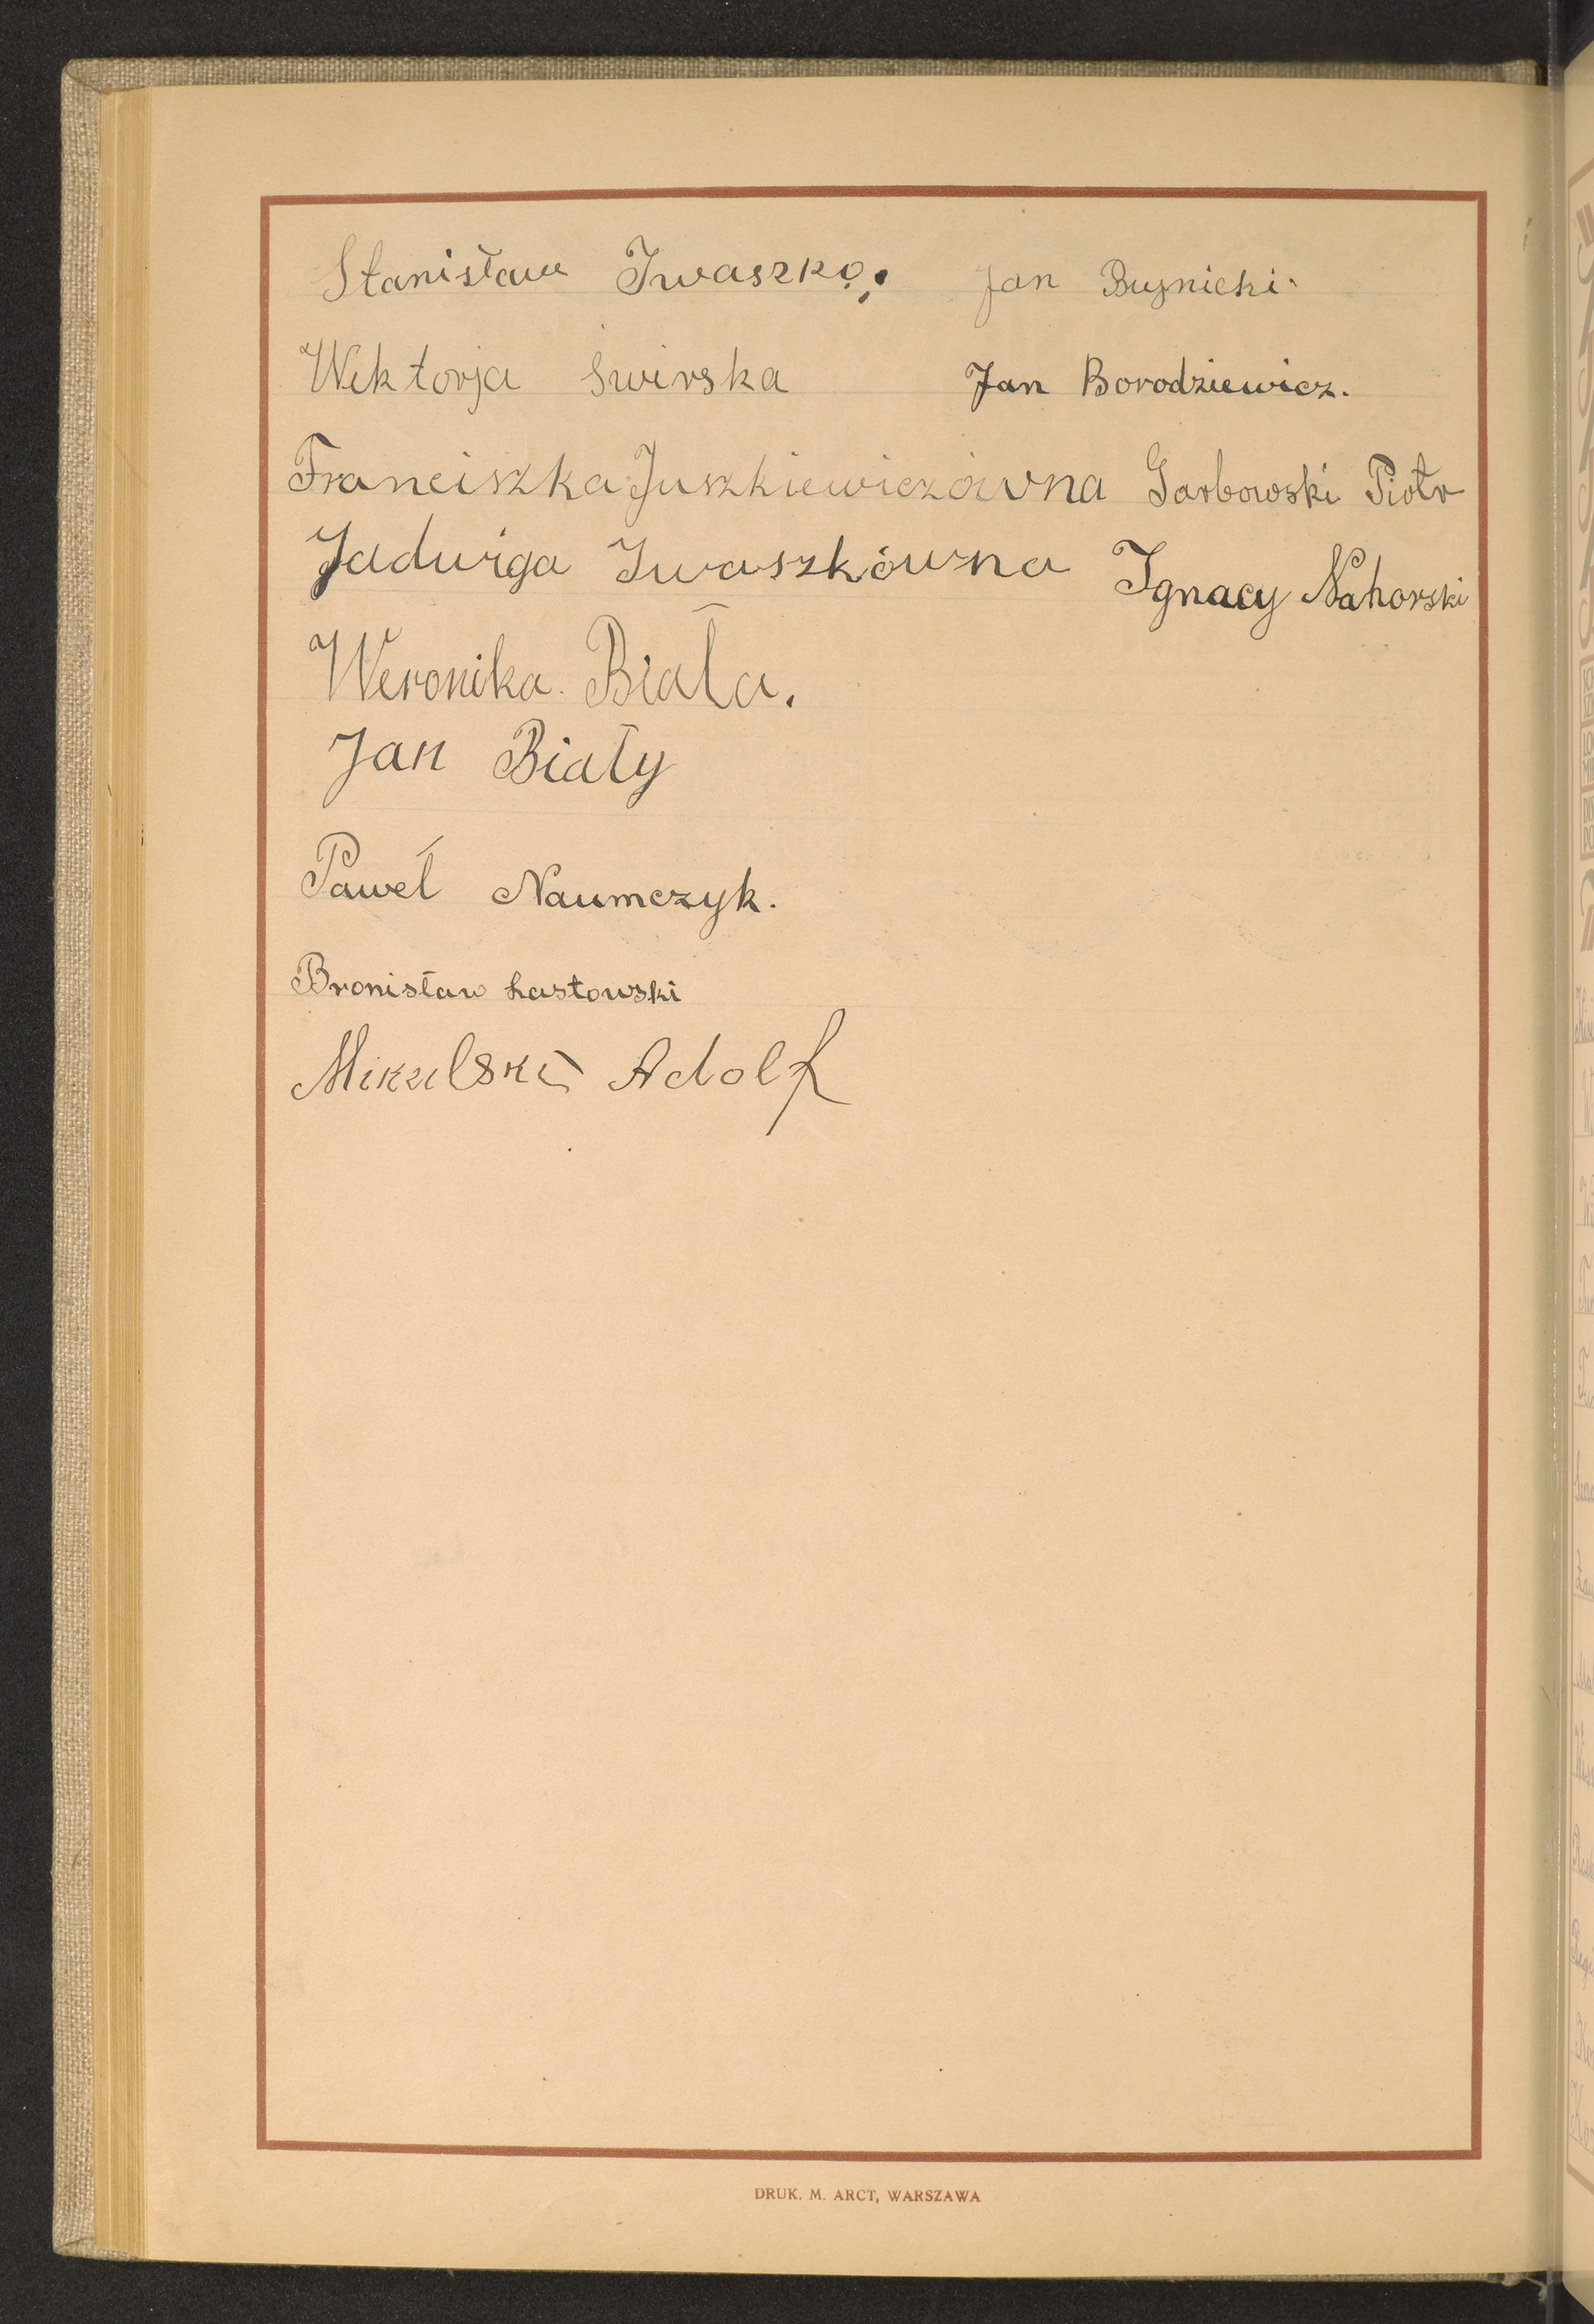 Stanisław Iwaszko. Jan Bujnicki.
Wiktorja Świrska Jan Borodziewicz.
Franciszka Juszkiewiczówna Garbowski Piotr
Jadwiga Iwaszkówna Ignacy Nahorski
Weronika Biała.
Jan Biały
Paweł Naumczyk.
Bronisław Łastowski
Mikulski Adolf
DRUK. M. ARCT, WARSZAWA